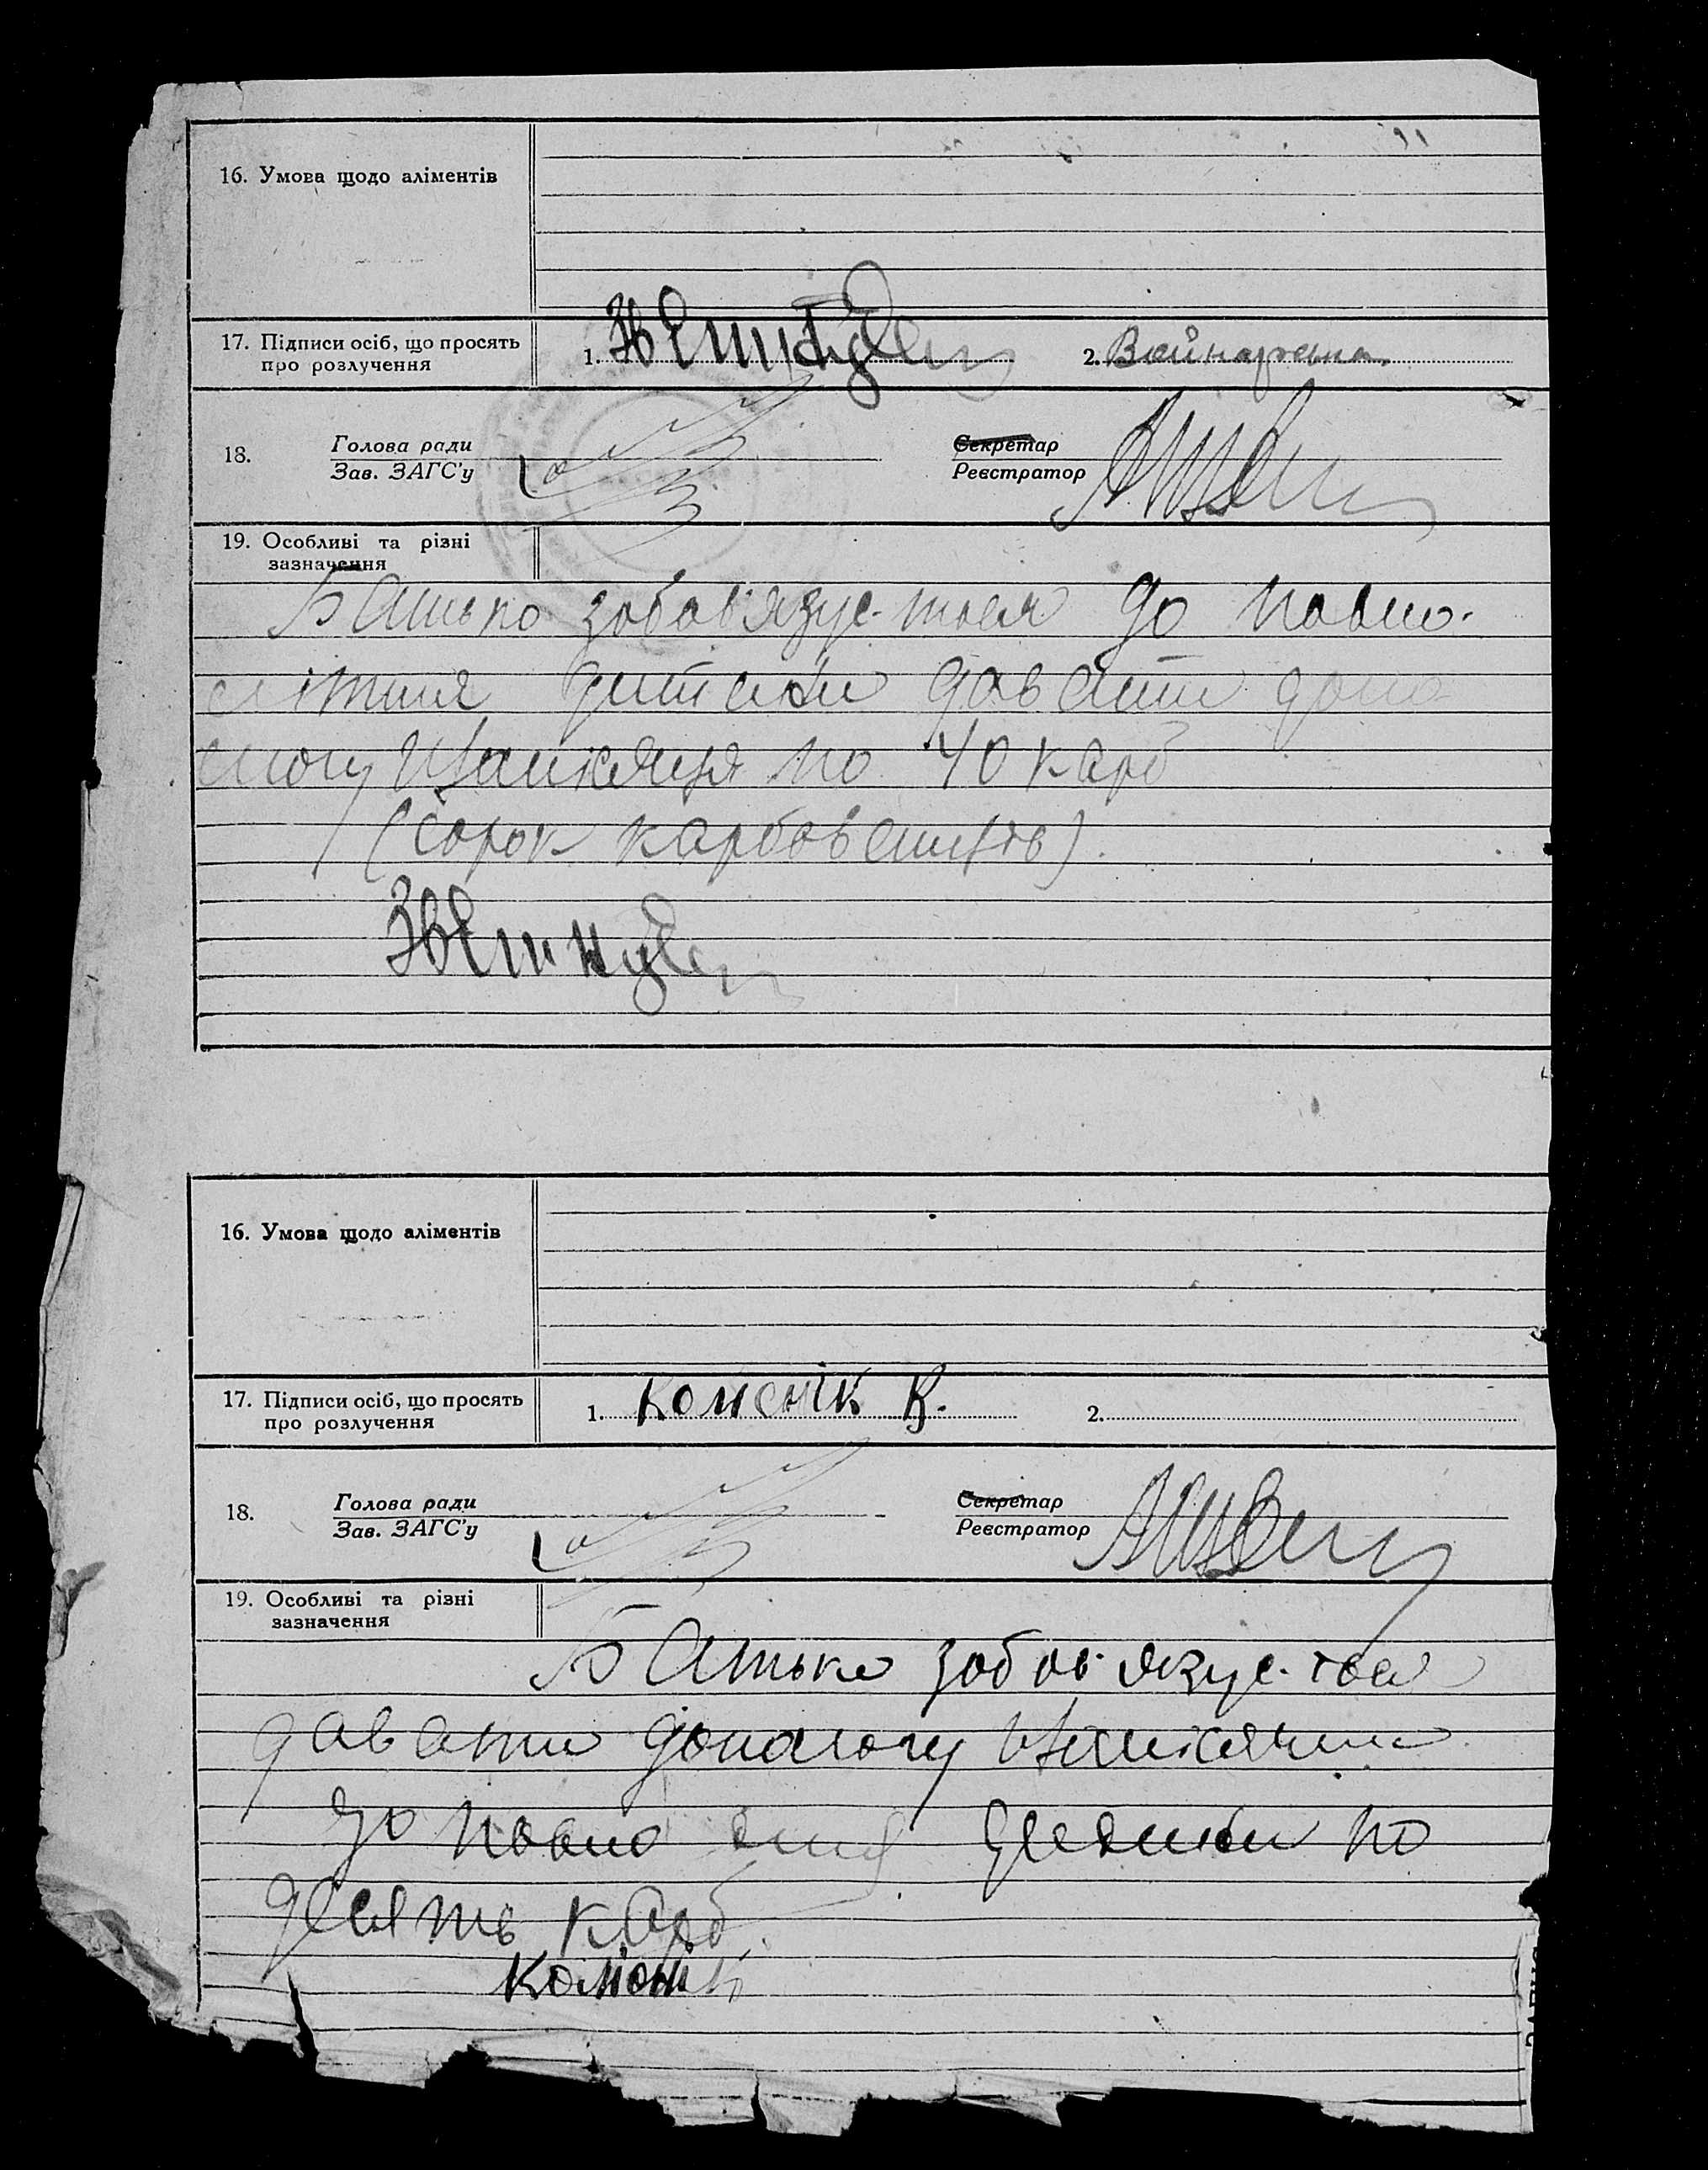 16. Умова щодо аліментів
17. Підписи осіб, що просять
про розлучення
1. 2. Войнаровська
18. Голова ради
Зав. ЗАГС'у
Секретар
Реєстратор
19. Особливі та різні
зазначення
Батько зобов'язує-ться до повно-
ліття дитини давати допо
могу щомісяця по 40 карб
(сорок карбованців).
16. Умова щодо аліментів
17. Підписи осіб, що просять
про розлучення
1. Комонік В. 2.
18. Голова ради
Зав. ЗАГС'у
Секретар
Реєстратор
19. Особливі та різні
зазначення
Батько зобов'язує-ться
давати допомогу щомісячно
до повно дитини по
десять карб.